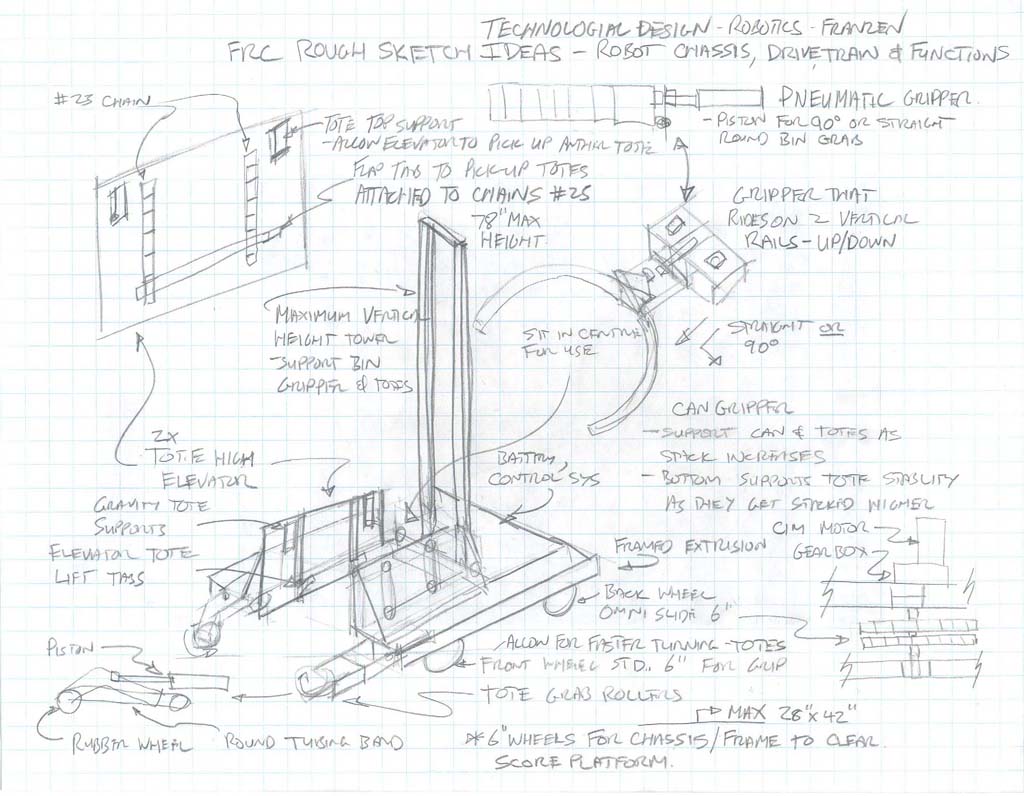 TECHNOLOGIAL DESIGN - ROBOTICS - FRANZEN
FRC ROUGH SKETCH IDEAS - ROBOT CHASSIS, DRIVETRAIN & FUNCTIONS
#25 CHAIN
PNEUMATIC GRIPPER
- PISTON FOR 90° OR STRAIGHT
ROUND BIN GRAB
TOTE TOP SUPPORT
- ALLOW ELEVATOR TO PICK UP ANTHER TOTE
FLAP TAB TO PICK-UP TOTES
ATTACHED TO CHAINS #25
78" MAX
HEIGHT
GRIPPER THAT
RIDES ON 2 VERTICAL
RAILS - UP/DOWN
MAXIMUM VERTICAL
HEIGHT TOWER
- SUPPORT BIN
GRIPPER & TOTES
SIT IN CENTRE
FOR USE
STRAIGHT OR
90°
CAN GRIPPER
- SUPPORT CAN & TOTES AS
STACK INCREASES
- BOTTOM SUPPORTS TOTE STABILITY
AS THEY GET STACKED HIGHER
2X
TOTE HIGH
ELEVATOR
BATTERY,
CONTROL SYS
GRAVITY TOTE
SUPPORTS
ELEVATOR TOTE
LIFT TABS
CIM MOTOR
GEARBOX
FRAMED EXTRISION
BACK WHEEL
OMNI SLIDE 6"
ALLOW FOR FASTER TURNING - TOTES
FRONT WHEEL STD. 6" FOR GRIP
TOTE GRAB ROLLERS
PISTON
RUBBER WHEEL
ROUND TUBING BAND
MAX 28" x 42"
* 6" WHEELS FOR CHASSIS/FRAME TO CLEAR
SCORE PLATFORM.